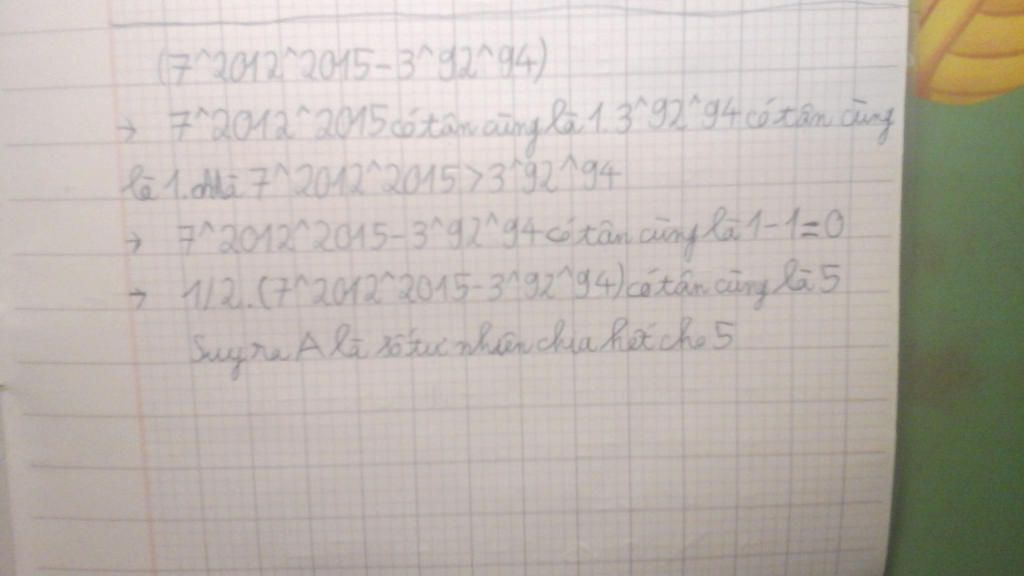 (7^2012^2015-3^92^94)
→ 7^2012^2015 có tận cùng là 1. 3^92^94 có tận cùng
là 1. Mà 7^2012^2015>3^92^94
→ 7^2012^2015-3^92^94 có tận cùng là 1-1=0
→ 1/2.(7^2012^2015-3^92^94) có tận cùng là 5
Suy ra A là số tự nhiên chia hết cho 5